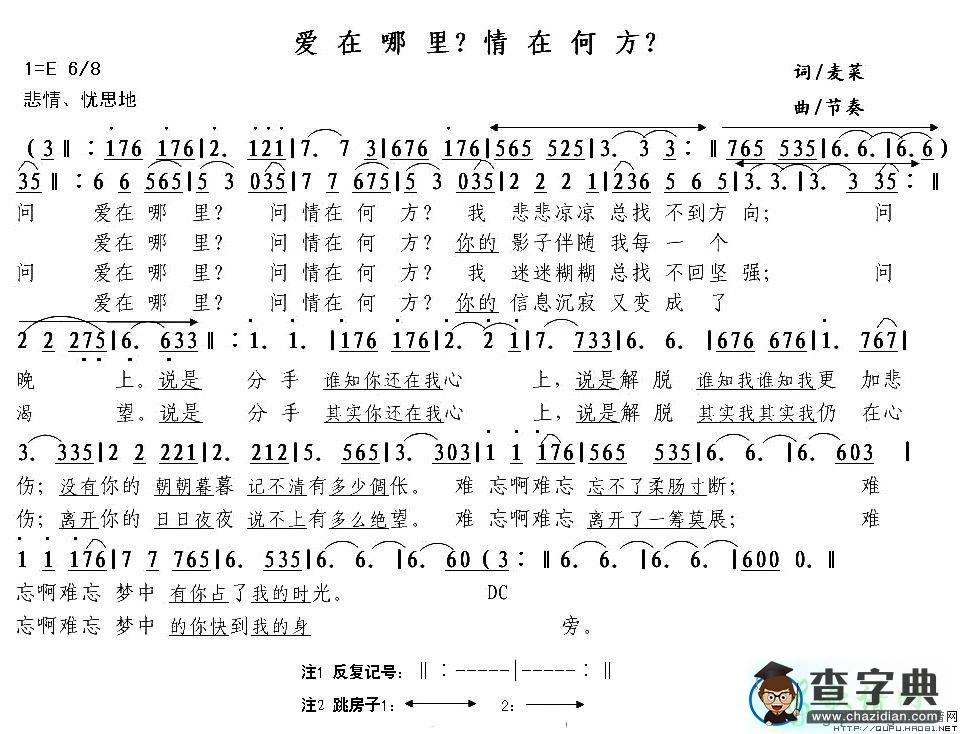 爱在哪里?情在何方?
1=E 6/8
词/麦菜
悲情、忧思地
曲/节奏
(3‖:176 176|2. 121|7. 7 3|676 176|565 525|3. 3 3:‖765 535|6.6.|6.6)
35‖:6 6 565|5 3 035|7 7 675|5 3 035|2 2 2 1|236 5 6 5|3.3.|3. 3 35:‖
问 爱在哪里? 问情在何方? 我 悲悲凉凉总找不到方向; 问
爱在哪里? 问情在何方? 你的影子伴随我每一个
问 爱在哪里? 问情在何方? 我 迷迷糊糊总找不回坚强; 问
爱在哪里? 问情在何方? 你的信息沉寂又变成了
2 2 275|6. 633‖:1. 1.|176 176|2. 2 1|7. 733|6. 6.|676 676|1. 767|
晚 上。说是 分手 谁知你还在我心 上,说是解脱 谁知我谁知我更 加悲
渴 望。说是 分手 其实你还在我心 上,说是解脱 其实我其实我仍 在心
3. 335|2 2 221|2. 212|5. 565|3. 303|1 1 176|565 535|6. 6.|6. 603|
伤;没有你的 朝朝暮暮 记不清有多少惆怅。 难 忘啊难忘 忘不了柔肠寸断; 难
伤;离开你的 日日夜夜 说不上有多么绝望。 难 忘啊难忘 离开了一筹莫展; 难
1 1 176|7 7 765|6. 535|6. 6.|6. 60(3:‖6. 6.|6. 6.|600 0.‖
忘啊难忘 梦中 有你占了我的时光。 DC
忘啊难忘 梦中 的你快到我的身 旁。
注1 反复记号:‖:-----|-----:‖
注2 跳房子1: 2:
查字典
www.chazidian.com
HTTP://QUPU.HAO81.NET